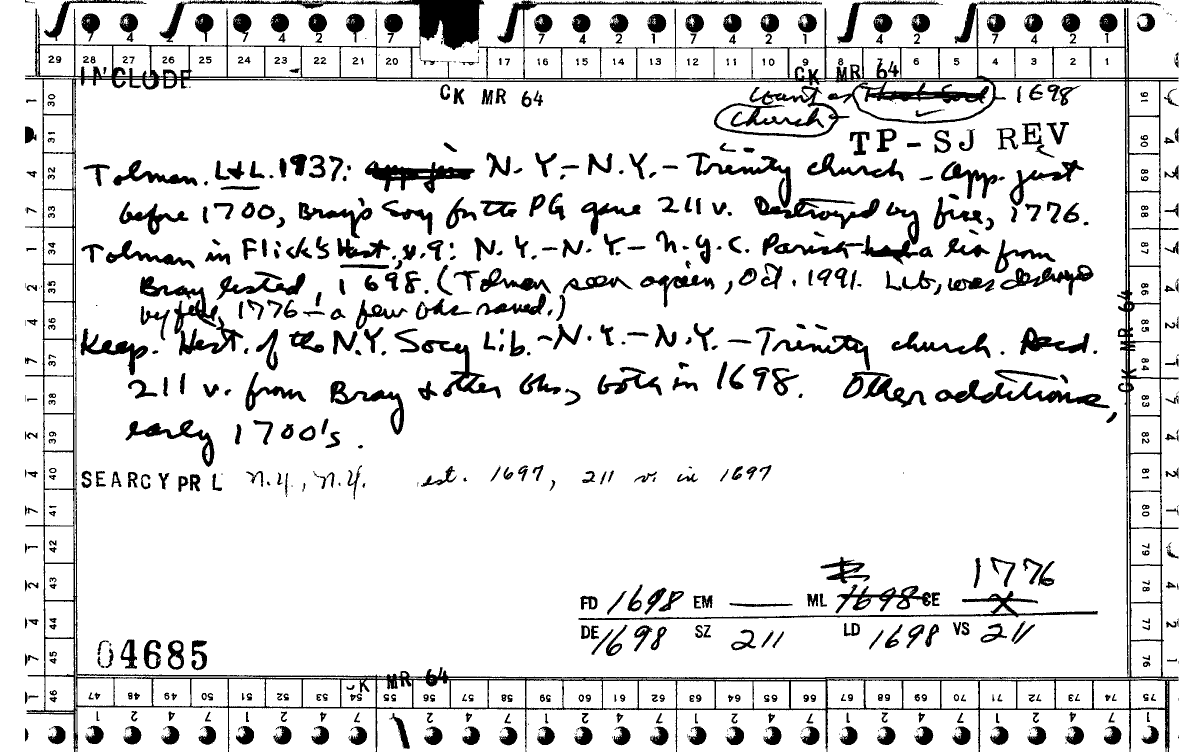 7 4 2 1 7 4 2 1 7 4 2 1 7 4 2 1 7 4 2 1
29 28 27 26 25 24 23 22 21 20 17 16 15 14 13 12 11 10 9 8 7 6 5 4 3 2 1
INCLUDE
CK MR 64
CK MR 64
want as 1698
church
TP-SJ REV
Tolman. L&L. 1937: N.Y.-N.Y.-Trinity church - App. just
before 1700, Bray's Socy for the PG gave 211 v. Destroyed by fire, 1776.
Tolman in Flick's Hist., v.9: N.Y.-N.Y.-N.Y.C. Parish had a lib from
Bray listed, 1698. (Tolman seen again, Oct. 1991. Lib. was destroyed
by fire, 1776 - a few bks saved.)
Keep. Hist. of the N.Y. Socy Lib.-N.Y.-N.Y.-Trinity church. Recd.
211 v. from Bray & other bks, both in 1698. Other additions,
early 1700's.
SEARCY PR L N.Y., N.Y. est. 1697, 211 v. in 1697
1776
FD 1698 EM ML 1698 CE X
DE 1698 SZ 211 LD 1698 VS 211
04685
CK MR 64
CK MR 64
30 31 32 33 34 35 36 37 38 39 40 41 42 43 44 45 46
91 90 89 88 87 86 85 84 83 82 81 80 79 78 77 76
47 48 49 50 51 52 53 54 55 56 57 58 59 60 61 62 63 64 65 66 67 68 69 70 71 72 73 74 75
1 2 4 7 1 2 4 7 1 2 4 7 1 2 4 7 1 2 4 7 1